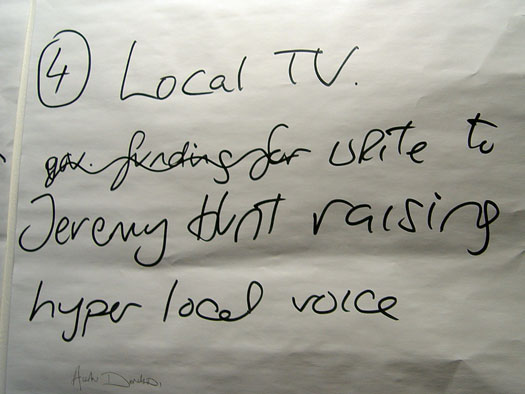 ④ Local TV.
gov. funding for write to
Jeremy Hunt raising
hyper local voice